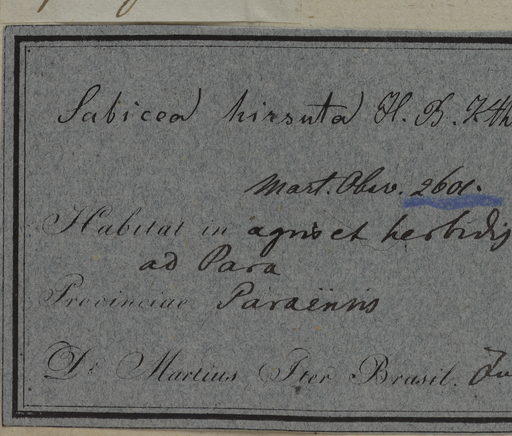 Sabicea hirsuta H. B. Kth
Mart. Obsv. 2601.
Habitat in agris et herbidis
ad Para
Provinciae Paraënsis
Dr Martius Iter Brasil. Ju